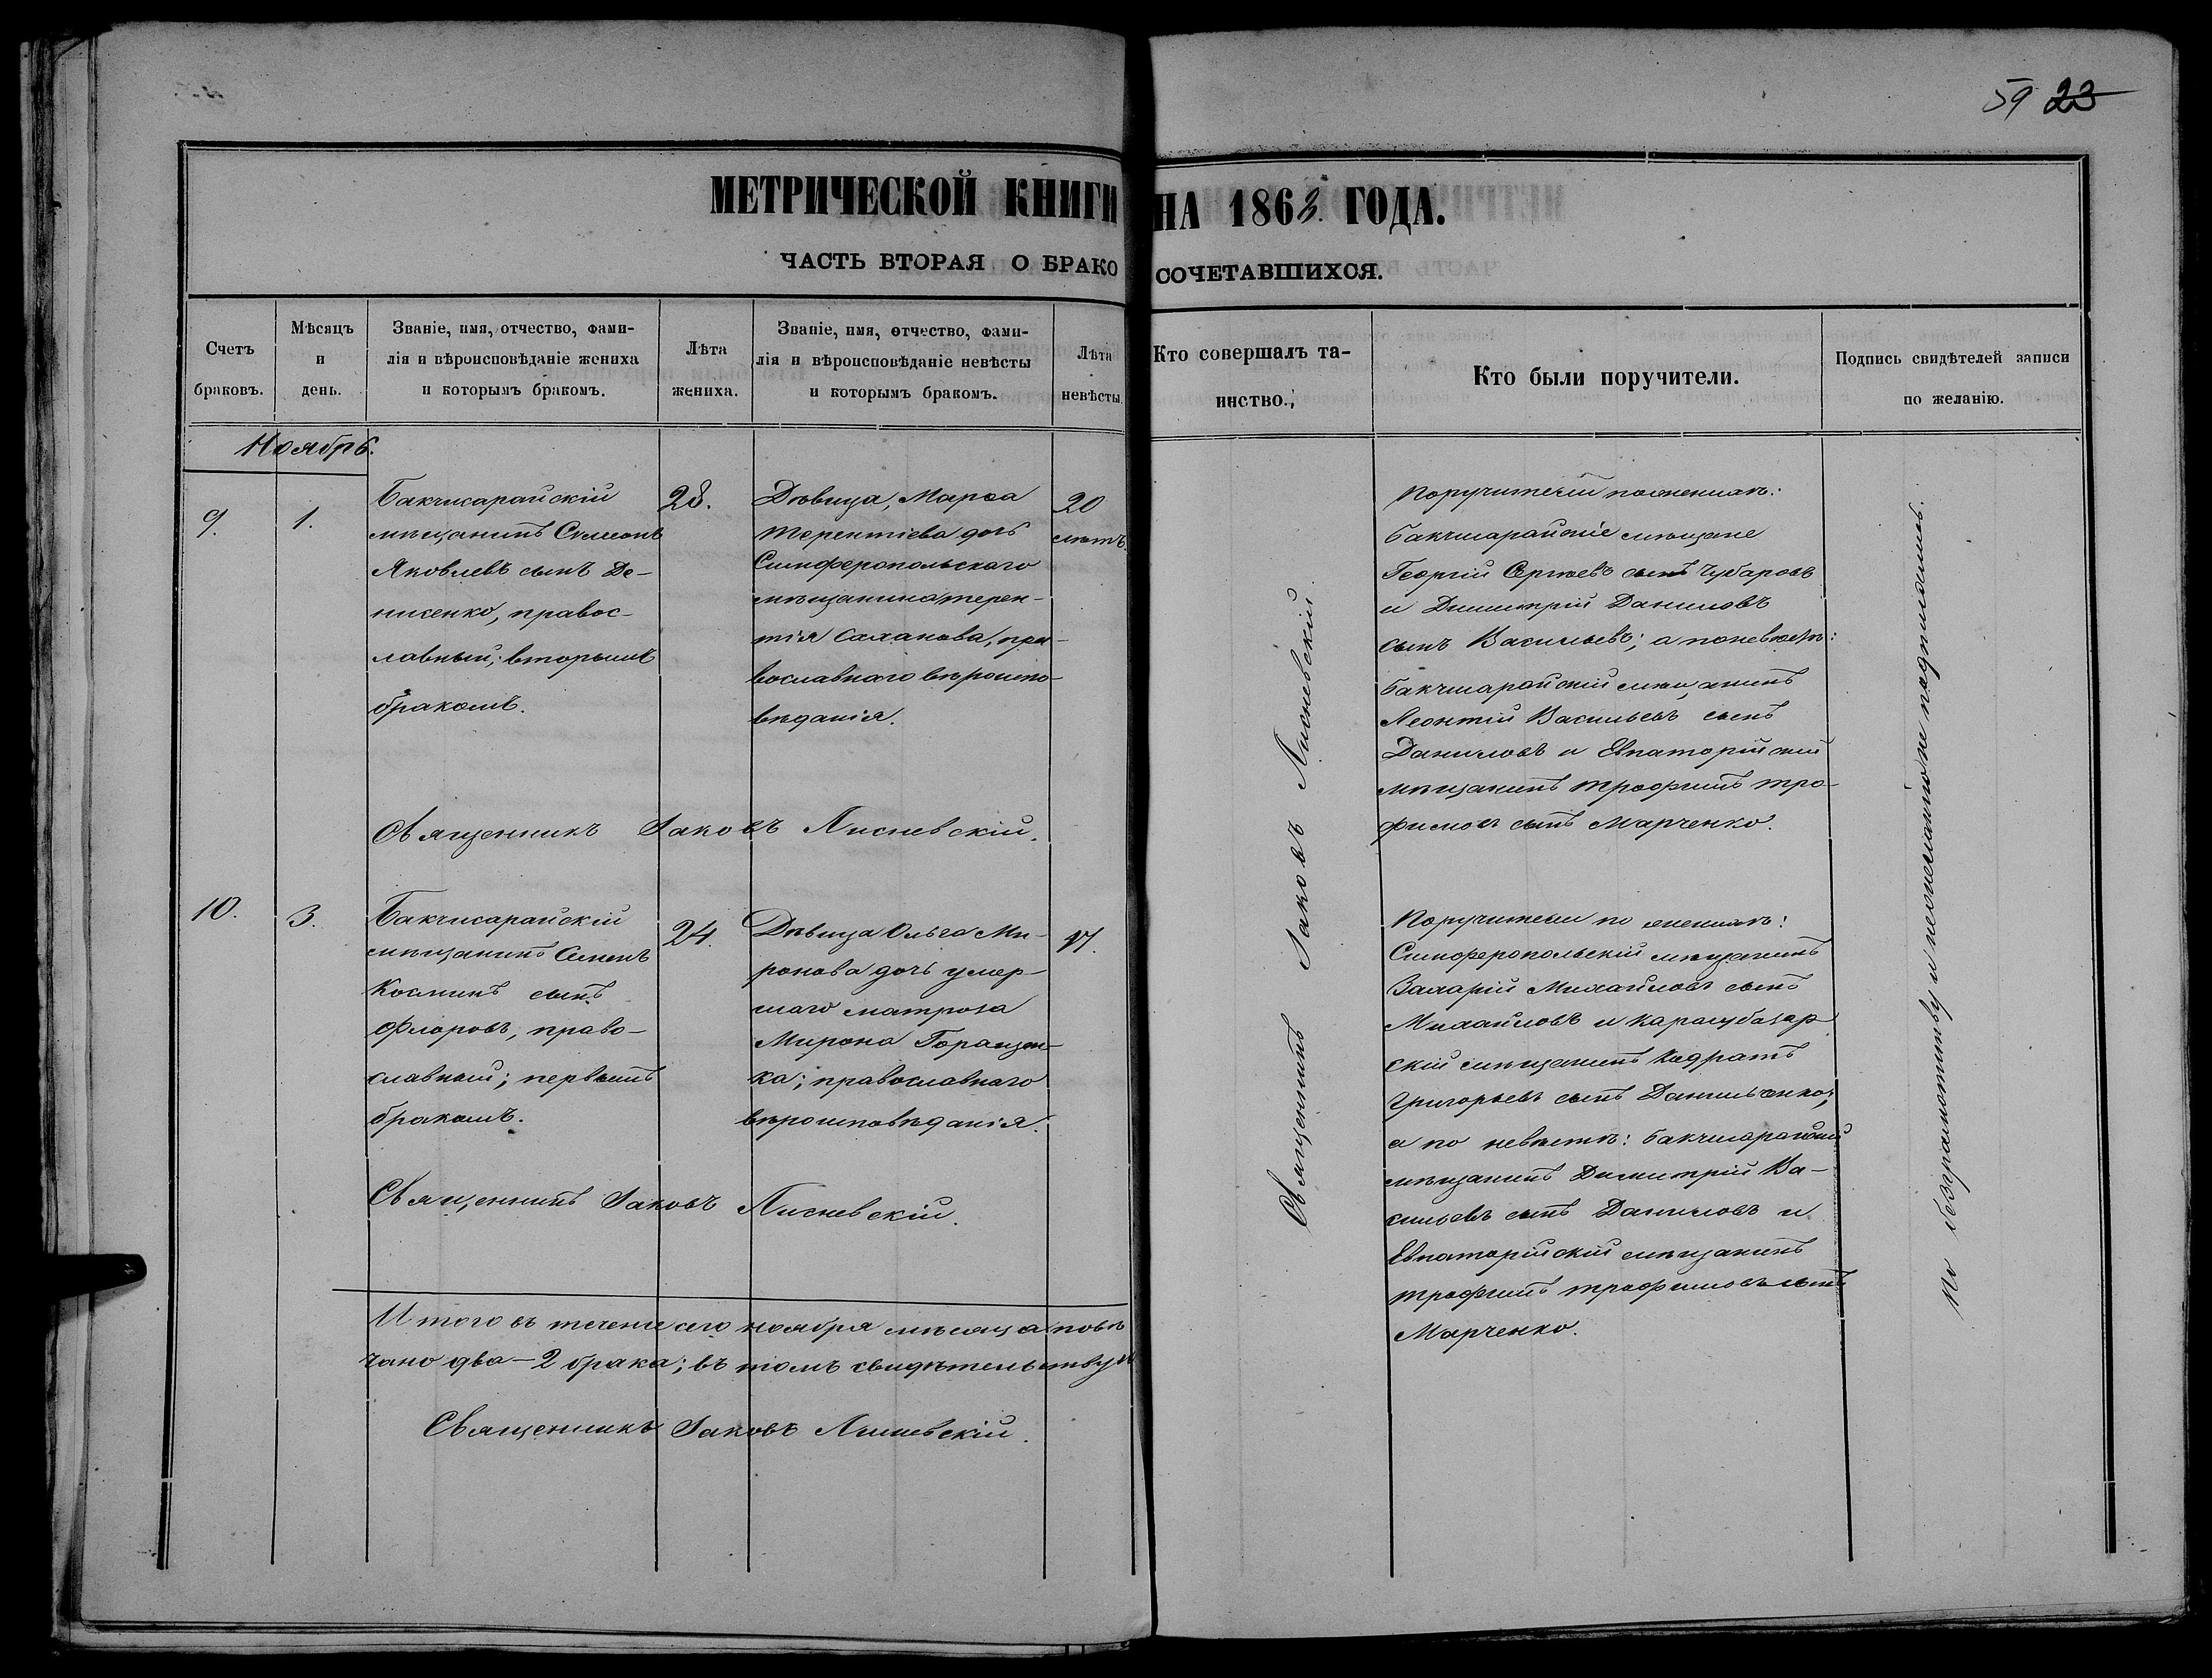 59 23
МЕТРИЧЕСКОЙ КНИГИ НА 1863. ГОДА.
ЧАСТЬ ВТОРАЯ О БРАКОСОЧЕТАВШИХСЯ.
Счетъ
браковъ.
Мѣсяцъ
и
день.
Званіе, имя, отчество, фами-
лія и вѣроисповѣданіе жениха
и которымъ бракомъ.
Лѣта
жениха.
Званіе, имя, отчество, фами-
лія и вѣроисповѣданіе невѣсты
и которымъ бракомъ.
Лѣта
невѣсты.
Кто совершалъ та-
инство.
Кто были поручители.
Подпись свидѣтелей записи
по желанію.
Ноябрь.
9.
1.
Бакчисарайскій
мѣщанинъ Симеонъ
Яковлевъ сынъ Де-
нисенко, правос-
лавный; вторымъ
бракомъ.
28.
Дѣвица, Марѳа
Терентіева дочь
Симферопольскаго
мѣщанина Терен-
тія Саханова, пра-
вославнаго вѣроиспо-
вѣданія.
20
лѣтъ.
Священникъ Іаковъ Лисневскій.
Поручители по женихѣ:
Бакчисарайскіе мѣщане
Георгій Сергѣевъ сынъ Чубаровъ
и Димитрій Даниловъ
сынъ Васильевъ; а по невѣстѣ:
Бакчисарайскій мѣщанинъ
Леонтій Васильевъ сынъ
Даниловъ и Евпаторійскій
мѣщанинъ Трофимъ Тро-
фимовъ сынъ Марченко.
10.
3.
Бакчисарайскій
мѣщанинъ Семенъ
Косминъ сынъ
Флоровъ, право-
славный; первымъ
бракомъ.
24.
Дѣвица Ольга Ми-
ронова дочь умер-
шаго матроза
Мирона Горащен-
ка; православнаго
вѣроисповѣданія.
17.
Священникъ Іаковъ Лисневскій.
Поручители по женихѣ:
Симферопольскій мѣщанинъ
Захарій Михайловъ сынъ
Михайловъ и Карасубазар
скій мѣщанинъ Кодратъ
Григорьевъ сынъ Данильченко;
а по невѣстѣ: Бакчисарайскій
мѣщанинъ Димитрій Ва-
сильевъ сынъ Даниловъ и
Евпаторійскій мѣщанинъ
Трофимъ Трофимовъ сынъ
Марченко.
Священникъ Іаковъ Лисневскій
По безграмотству и нежеланію не подписались.
Итого въ теченіе сего ноября мѣсяца повѣ
чано два-2 брака; въ томъ свидѣтельствую
Священникъ Іаковъ Лисневскій.